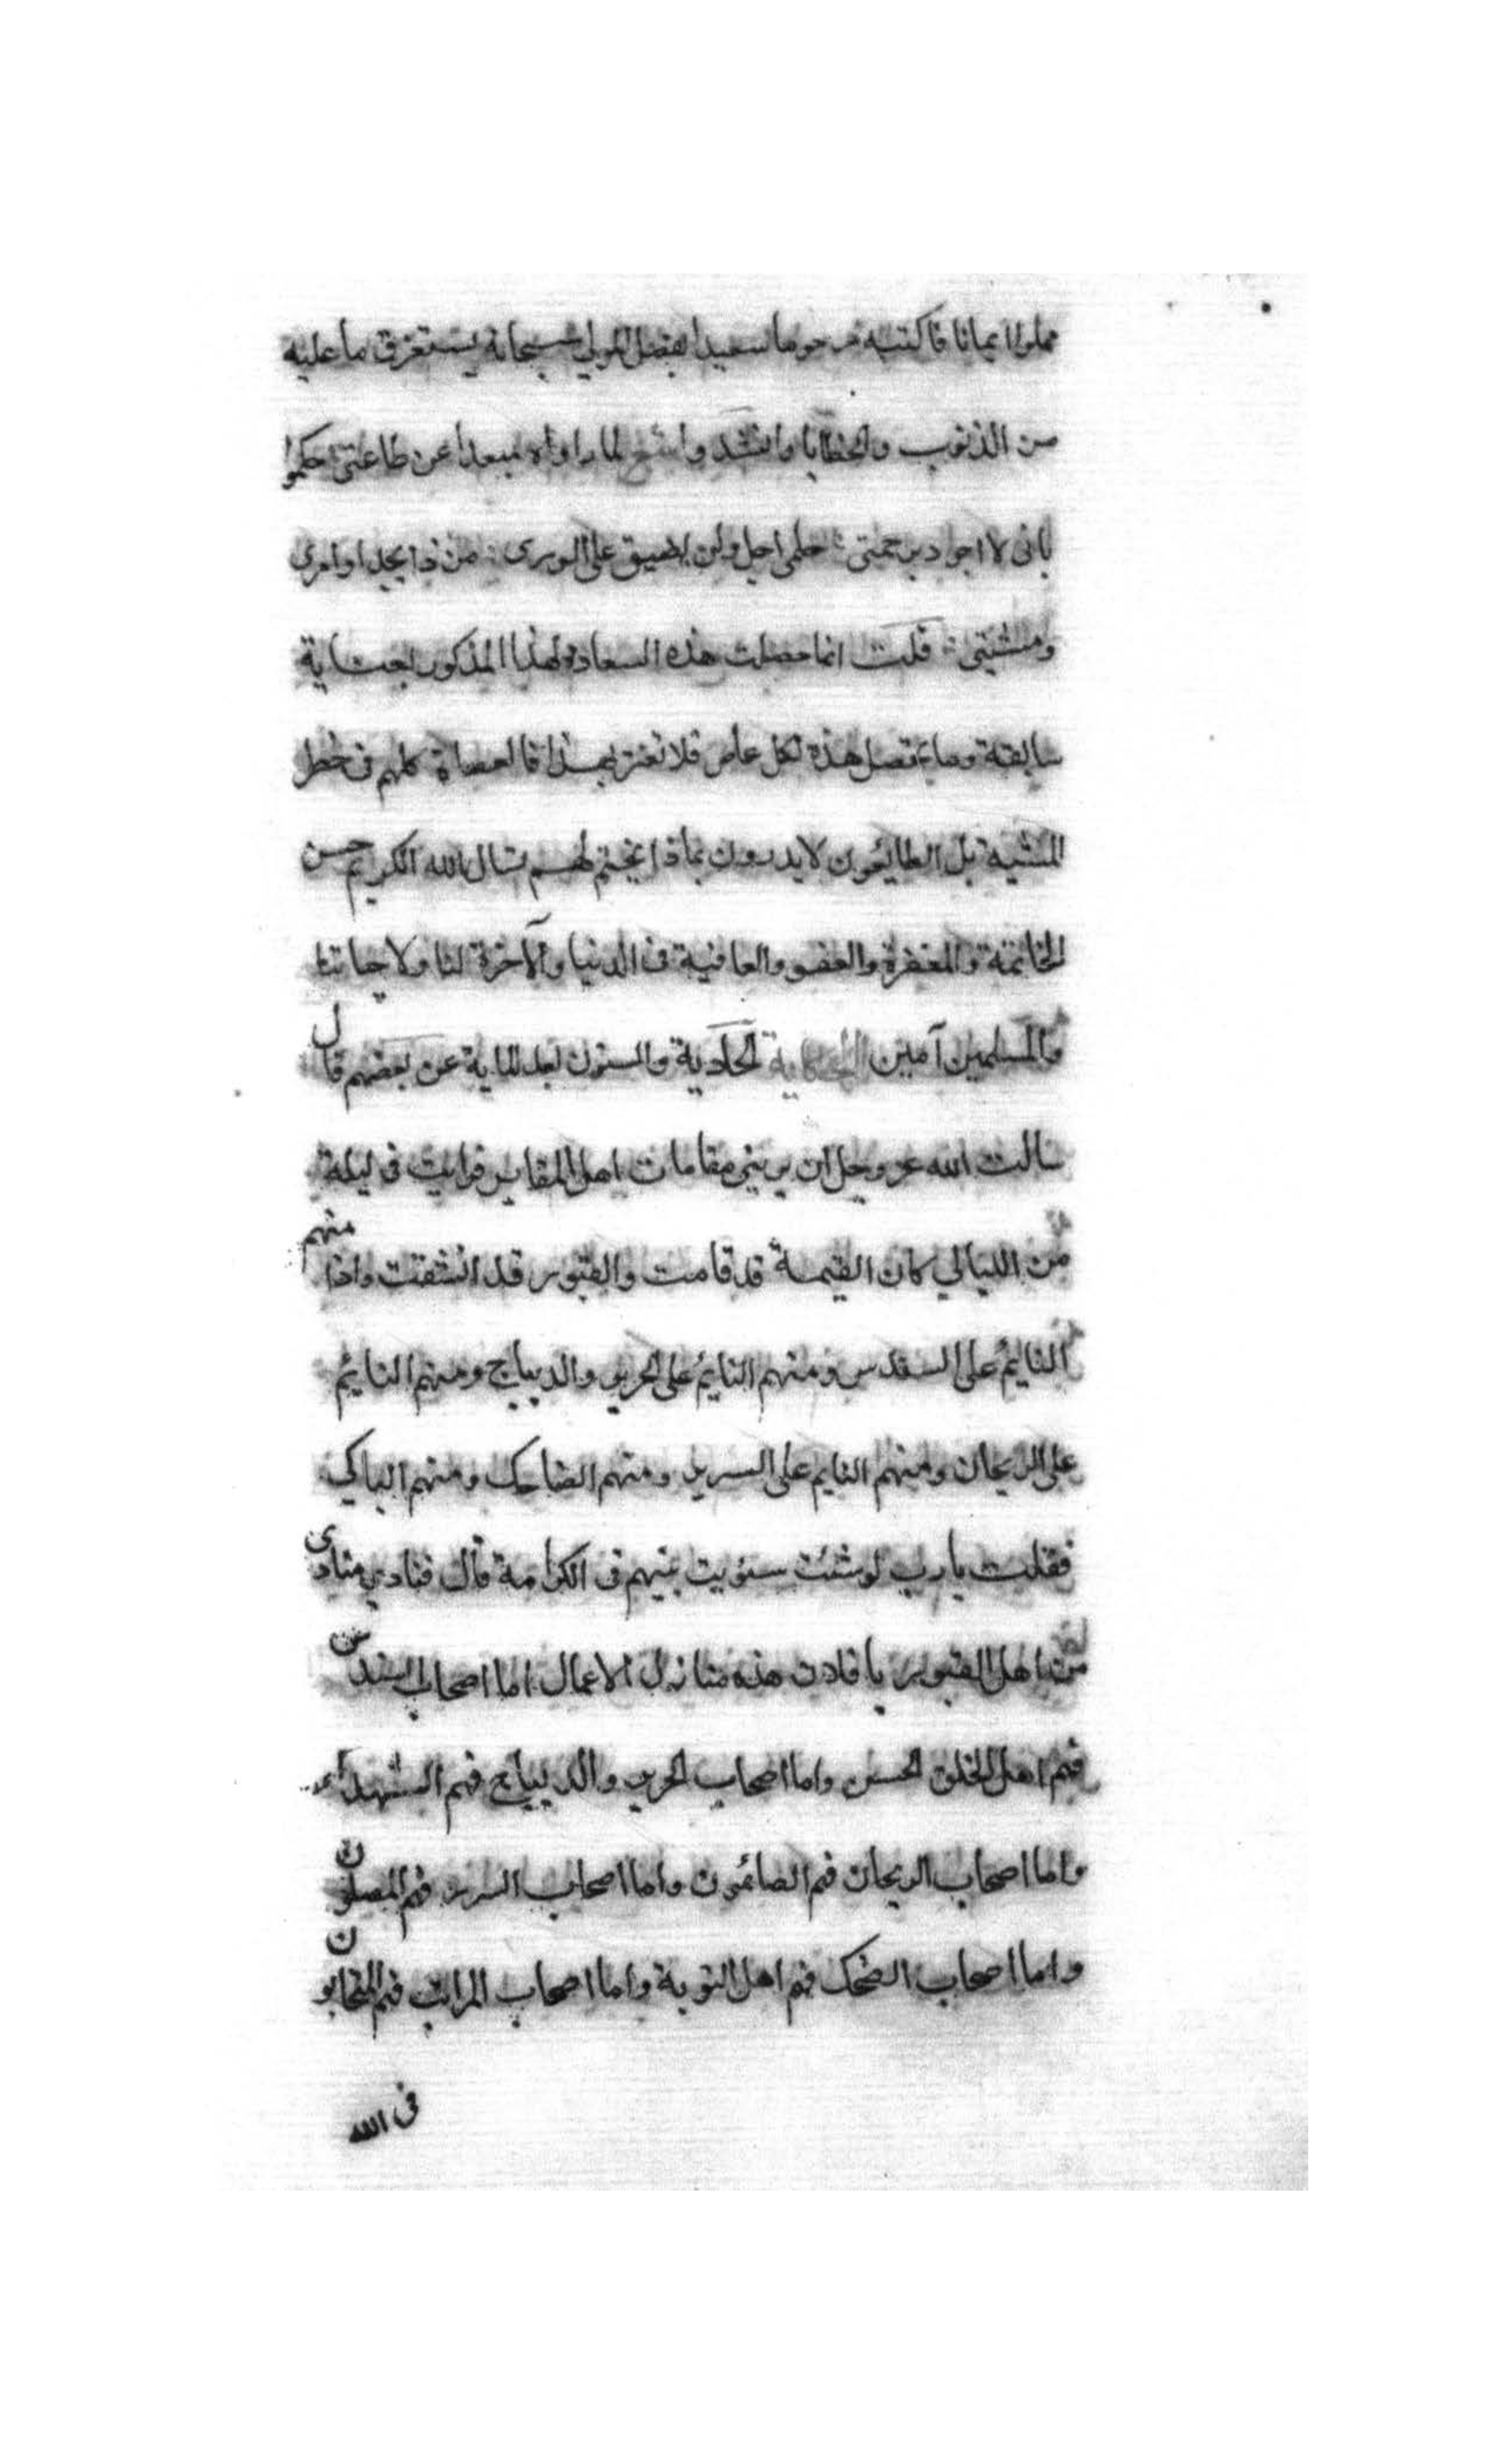 مملوا ايمانا فاكتبه مرحوما سعيدا بفضل المولى سبحانه يستغرق ما عليه
من الذنوب والخطايا وانشد لما راواه مبعدا عن طاعتى حكموا
بانى لا اجود برحمتى حلمى اجل ولن يضيق على الورى من ذا يحد اوامرى
ومشيتى قلت انما حصلت هذه السعادة لهذا المذكور بعناية
سابقة وما يحصل هذه لكل عاص فلا تغتر بهذا فالعصاة كلهم فى خطر
المشية بل الطايعون لا يدرون بماذا يختم لهم نسال الله الكريم حسن
الخاتمة والمغفرة والعفو والعافية فى الدنيا والآخرة لنا ولاحبابنا
والمسلمين آمين الحكاية الحادية والستون بعد الماية عن بعضهم قال
سالت الله عز وجل ان يرينى مقامات اهل المقابر فرايت فى ليلة
من الليالي كان القيمة قد قامت والقبور قد انشقت واذا منهم
النايم على السندس ومنهم النايم على الحرير والديباج ومنهم النايم
على الريحان ومنهم النايم على السرير ومنهم الضاحك ومنهم الباكي
فقلت يا رب لو شئت سويت بينهم فى الكرامة قال فنادي منادى
من اهل القبور يا فلان هذه منازل الاعمال اما اصحاب السندس
فهم اهل الخلق الحسن واما اصحاب الحرير والديباج فهم الشهداء
واما اصحاب الريحان فهم الصائمون واما اصحاب السرير فهم المصلون
واما اصحاب الضحك فهم اهل التوبة واما اصحاب المراتب فهم المتحابون
فى الله